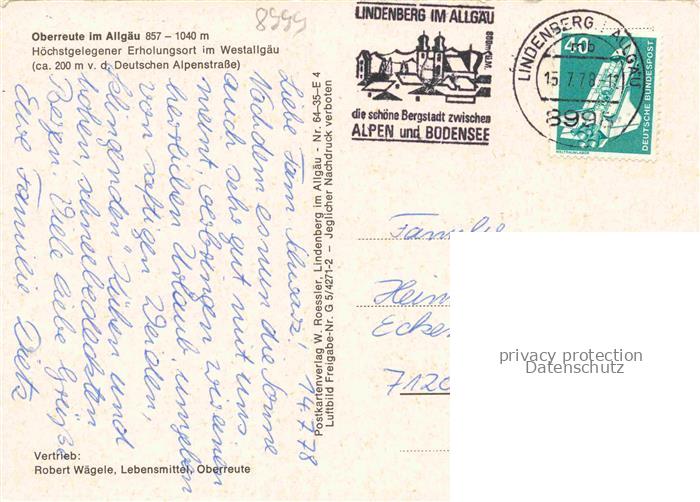 8999
Oberreute im Allgäu 857 – 1040 m
Höchstgelegener Erholungsort im Westallgäu
(ca. 200 m v. d. Deutschen Alpenstraße)
14.7.78
Liebe Fam. Schwarz!
Nachdem es nun die Sonne
auch sehr gut mit uns
meint, verbringen wir einen
herrlichen Urlaub umgeben
von saftigen Weiden,
Kühen und
hohen, schneebedeckten
Viele liebe Grüße
Eure Familie Dietz
Vertrieb:
Robert Wägele, Lebensmittel, Oberreute
Postkartenverlag W. Roessler, Lindenberg im Allgäu - Nr. 64-35-E 4
Luftbild Freigabe-Nr. G 5/4271-2 – Jeglicher Nachdruck verboten
LINDENBERG IM ALLGÄU
800m-914m
die schöne Bergstadt zwischen
ALPEN und BODENSEE
LINDENBERG, ALLGÄU
15.7.78
899
40
DEUTSCHE BUNDESPOST
WELTRAUMLABOR
Familie
Heim
Ecke
712
privacy protection
Datenschutz